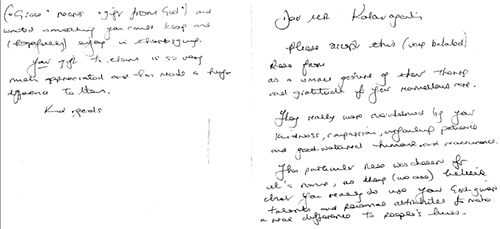 Dear MR
Please accept this (very belated)
Rose from
as a small gesture of their thanks
and gratitude of your marvellous care.
They really were overwhelmed by your
kindness, compassion, unfailing patience
and good-natured humour and reassurance.
This particular Rose was chosen for
it's name, as they (we all) believe
that you really do use your God-given
talents and personal attributes to make
a real difference to people's lives.
("Grace" means "gift from God") and
wanted something you could keep and
(hopefully) enjoy in thanksgiving.
Your gift to them is so very
much appreciated and has made a huge
difference to them.
Kind regards